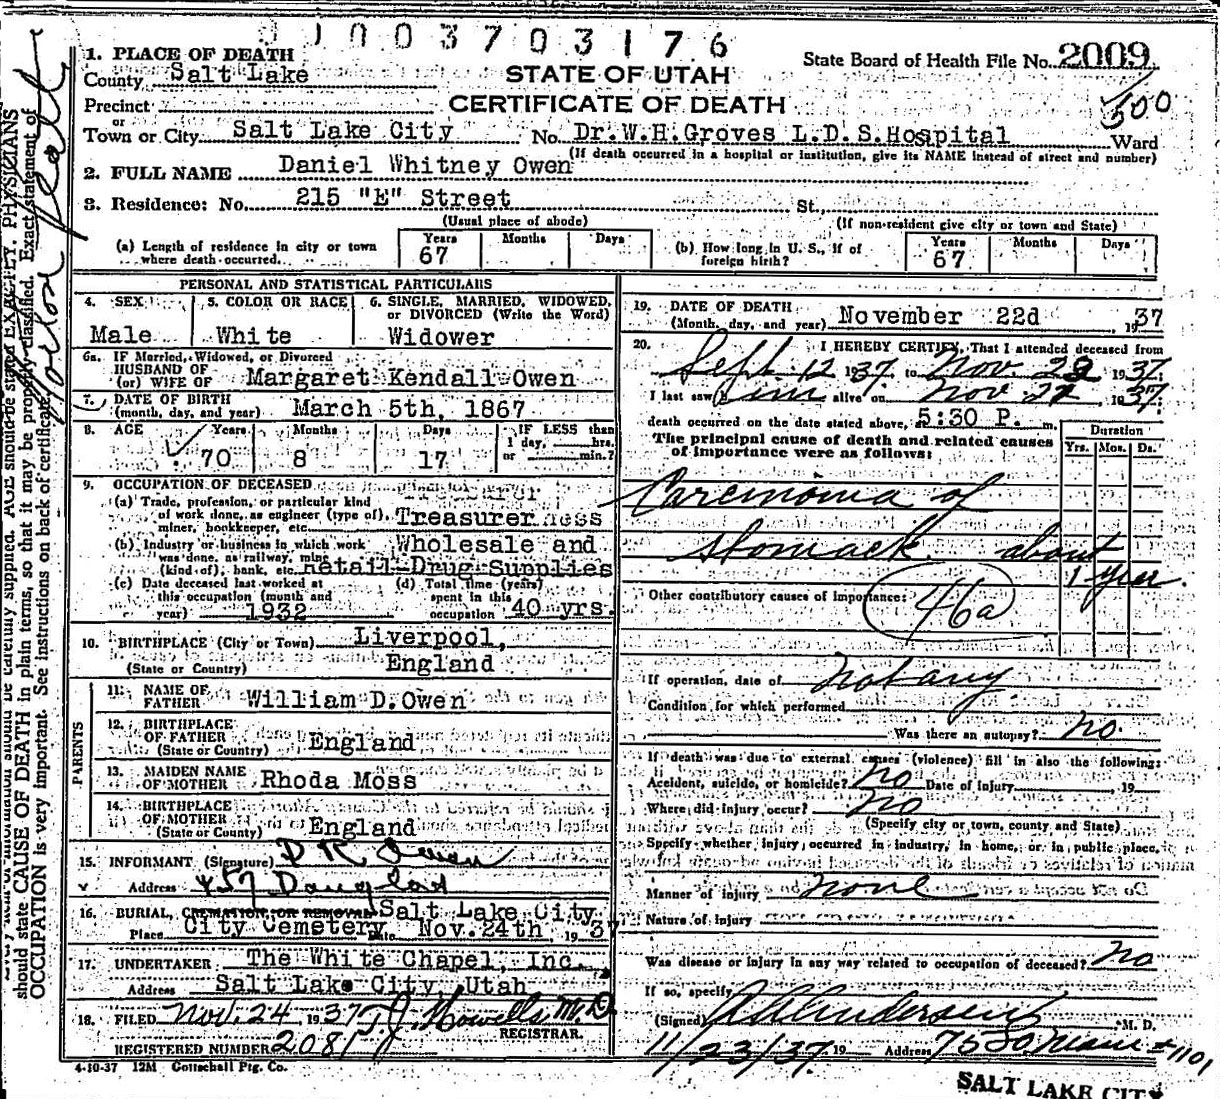 1003703176
1. PLACE OF DEATH
State Board of Health File No. 2009
County Salt Lake
STATE OF UTAH
Precinct
CERTIFICATE OF DEATH
500
or
Town or City Salt Lake City No. Dr.W.H.Groves L.D.S.Hospital Ward
(If death occurred in a hospital or institution, give its NAME instead of street and number)
2. FULL NAME Daniel Whitney Owen
3. Residence: No. 215 "E" Street St.,
(Usual place of abode) (If non-resident give city or town and State)
(a) Length of residence in city or town where death occurred. Years 67 Months Days
(b) How long in U. S., if of foreign birth? Years 67 Months Days
PERSONAL AND STATISTICAL PARTICULARS
4. SEX Male
5. COLOR OR RACE White
6. SINGLE, MARRIED, WIDOWED, or DIVORCED (Write the Word) Widower
6a. IF Married, Widowed, or Divorced
HUSBAND OF
(or) WIFE OF Margaret Kendall Owen
7. DATE OF BIRTH
(month, day, and year) March 5th, 1867
8. AGE Years 70 Months 8 Days 17 IF LESS than 1 day, hrs. or min.?
9. OCCUPATION OF DECEASED
(a) Trade, profession, or particular kind
of work done, as engineer (type of),
miner, bookkeeper, etc. Treasurer
(b) Industry or business in which work
was done, as railway, mine
(kind of), bank, etc. Wholesale and Retail Drug Supplies
(c) Date deceased last worked at
this occupation (month and
year) 1932
(d) Total time (years)
spent in this
occupation 40 yrs.
10. BIRTHPLACE (City or Town) Liverpool,
(State or Country) England
PARENTS
11. NAME OF FATHER William D. Owen
12. BIRTHPLACE OF FATHER
(State or Country) England
13. MAIDEN NAME OF MOTHER Rhoda Moss
14. BIRTHPLACE OF MOTHER
(State or Country) England
15. INFORMANT (Signature) D R Owen
Address 457 Douglas
16. BURIAL, CREMATION, OR REMOVAL Salt Lake City
Place City Cemetery Date Nov. 24th, 1937
17. UNDERTAKER The White Chapel, Inc.
Address Salt Lake City, Utah
18. FILED Nov. 24 1937 T.J. Howells M.D.
REGISTRAR.
REGISTERED NUMBER 2081
4-10-37 12M Gottschall Ptg. Co.
19. DATE OF DEATH
(Month, day, and year) November 22d, 1937
20. I HEREBY CERTIFY, That I attended deceased from
Sept 12 1937 to Nov. 22 1937
I last saw him alive on Nov 22 1937
death occurred on the date stated above, 5:30 P. m.
The principal cause of death and related causes of importance were as follows:
Duration
Yrs. Mos. Ds.
Carcinoma of
stomach. about
1 year.
Other contributory causes of importance:
46a
If operation, date of not any
Condition for which performed
Was there an autopsy? no
If death was due to external causes (violence) fill in also the following:
Accident, suicide, or homicide? no Date of injury , 19
Where did injury occur? no
(Specify city or town, county and State)
Specify whether injury occurred in industry, in home, or in public place.
Manner of injury none
Nature of injury
Was disease or injury in any way related to occupation of deceased? No
If so, specify
(Signed) M. D.
11/23/37. 19 Address
SALT LAKE CITY
should state CAUSE OF DEATH in plain terms, so that it may be properly classified. Exact statement of
OCCUPATION is very important. See instructions on back of certificate.